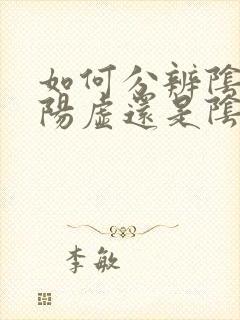 如何分辨陰
陽虛還是陰
李敏